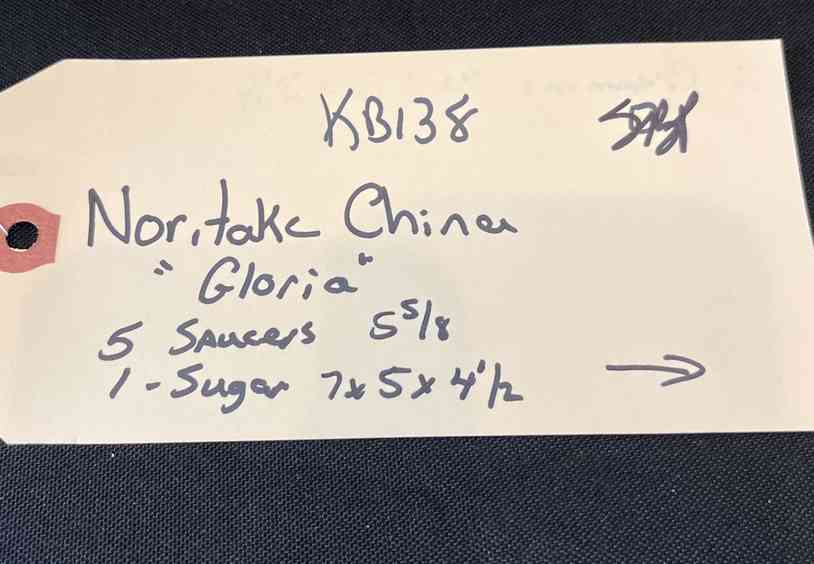 KB138
Noritake China
"Gloria"
5 Saucers 5 5/8
1 - Sugar 7 x 5 x 4 1/2